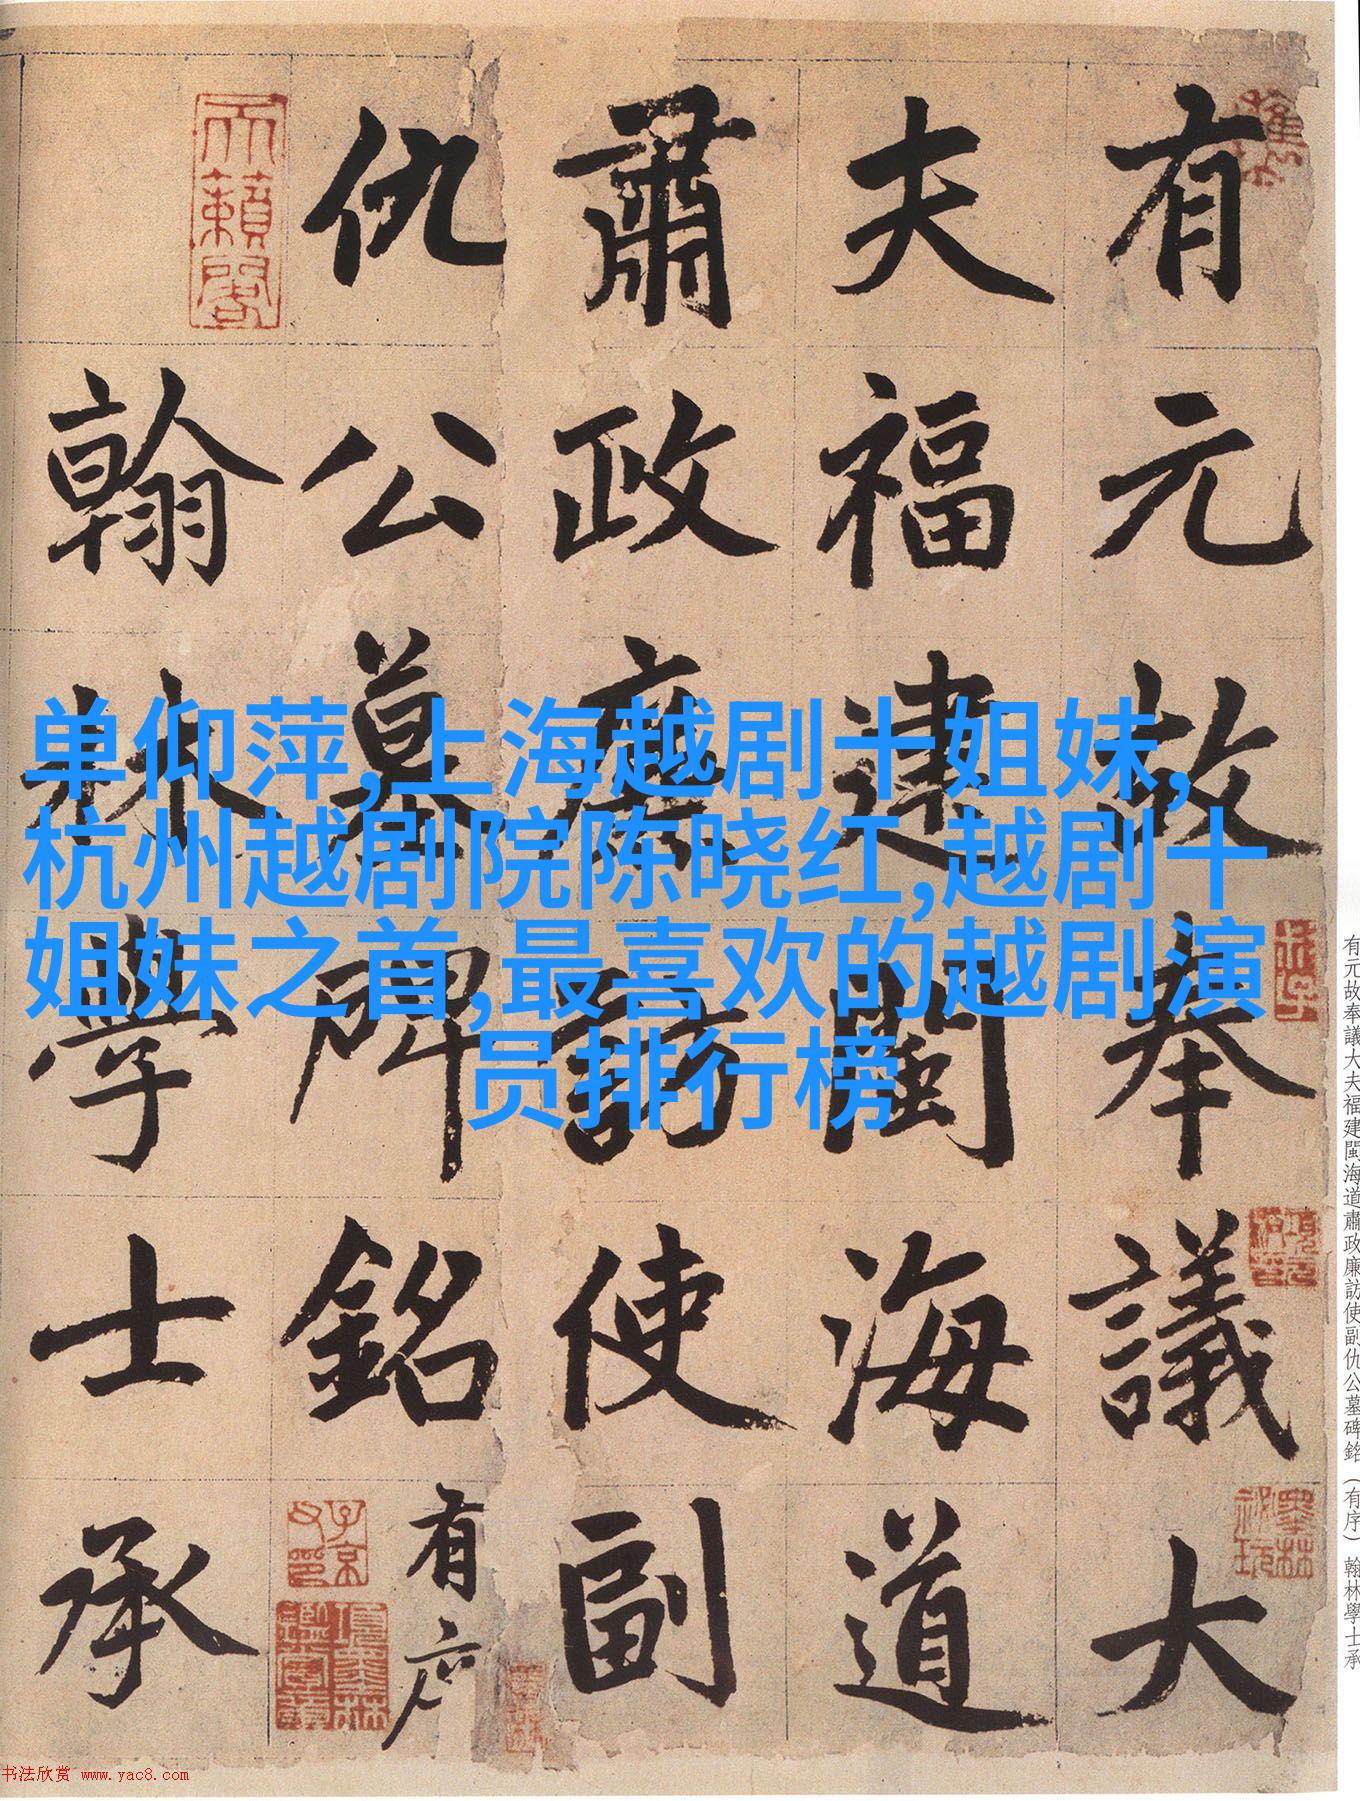 有元故奉議大
夫福建閩海道
肅政廉訪使副
仇公墓碑銘有序
翰林學士承
天籟閣
子京父印
項元汴印
墨林祕玩
单仰萍,上海越剧十姐妹,
杭州越剧院陈晓红,越剧十
姐妹之首,最喜欢的越剧演
员排行榜
有元故奉議大夫福建閩海道肅政廉訪使副仇公墓碑銘（有序）翰林學士承
书法欣赏 www.yac8.com